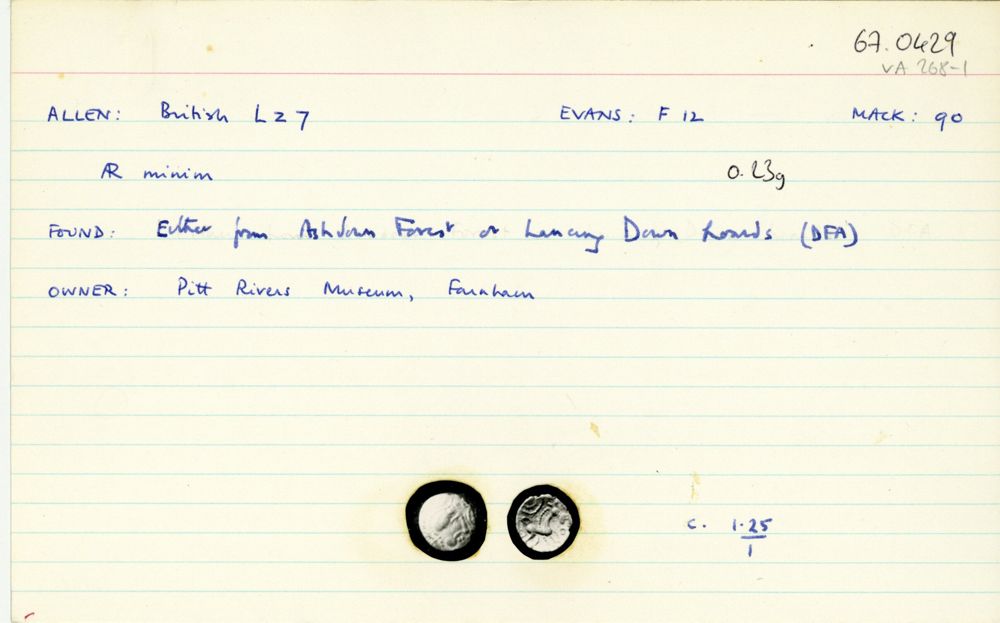 67.0429
VA 268-1
ALLEN: British LZ7 EVANS: F 12 MACK: 90
ÆR minim 0.23g
FOUND: Either from Ashdown Forest or Lancing Down hoards (DFA)
OWNER: Pitt Rivers Museum, Farnham
c. 1.25
1